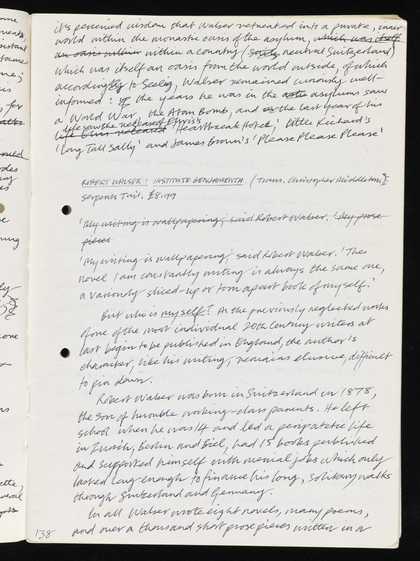 it's perceived wisdom that Walser retreated into a private, inner
world within the monastic oasis of the asylum, which was itself
an oasis within a country (neutral Switzerland)
which was itself an oasis from the world outside, of which
according to Seelig, Walser remained curiously well-
informed: if the years he was in the asylums saw
a World War, the Atom Bomb, and the last year of his
life saw the release of Elvis's 'Heartbreak Hotel', Little Richard's
'Long Tall Sally' and James Brown's 'Please Please Please'
ROBERT WALSER: INSTITUTE BENJAMENTA (Trans. Christopher Middleton)
Serpents Tail. £8.99
'My writing is wallpapering', said Robert Walser. 'My prose
pieces
'My writing is wallpapering', said Robert Walser. 'The
novel I am constantly writing is always the same one,
a variously sliced-up or torn apart book of myself.'
But who is myself? As the previously neglected works
of one of the most individual 20th Century writers at
last begin to be published in England, the author's
character, like his writing, remains elusive, difficult
to pin down.
Robert Walser was born in Switzerland in 1878,
the son of humble working-class parents. He left
school when he was 14 and led a peripatetic life
in Zurich, Berlin and Biel, had 15 books published
and supported himself with menial jobs which only
lasted long enough to finance his long, solitary walks
through Switzerland and Germany.
In all Walser wrote eight novels, many poems,
and over a thousand short prose pieces written in a
138